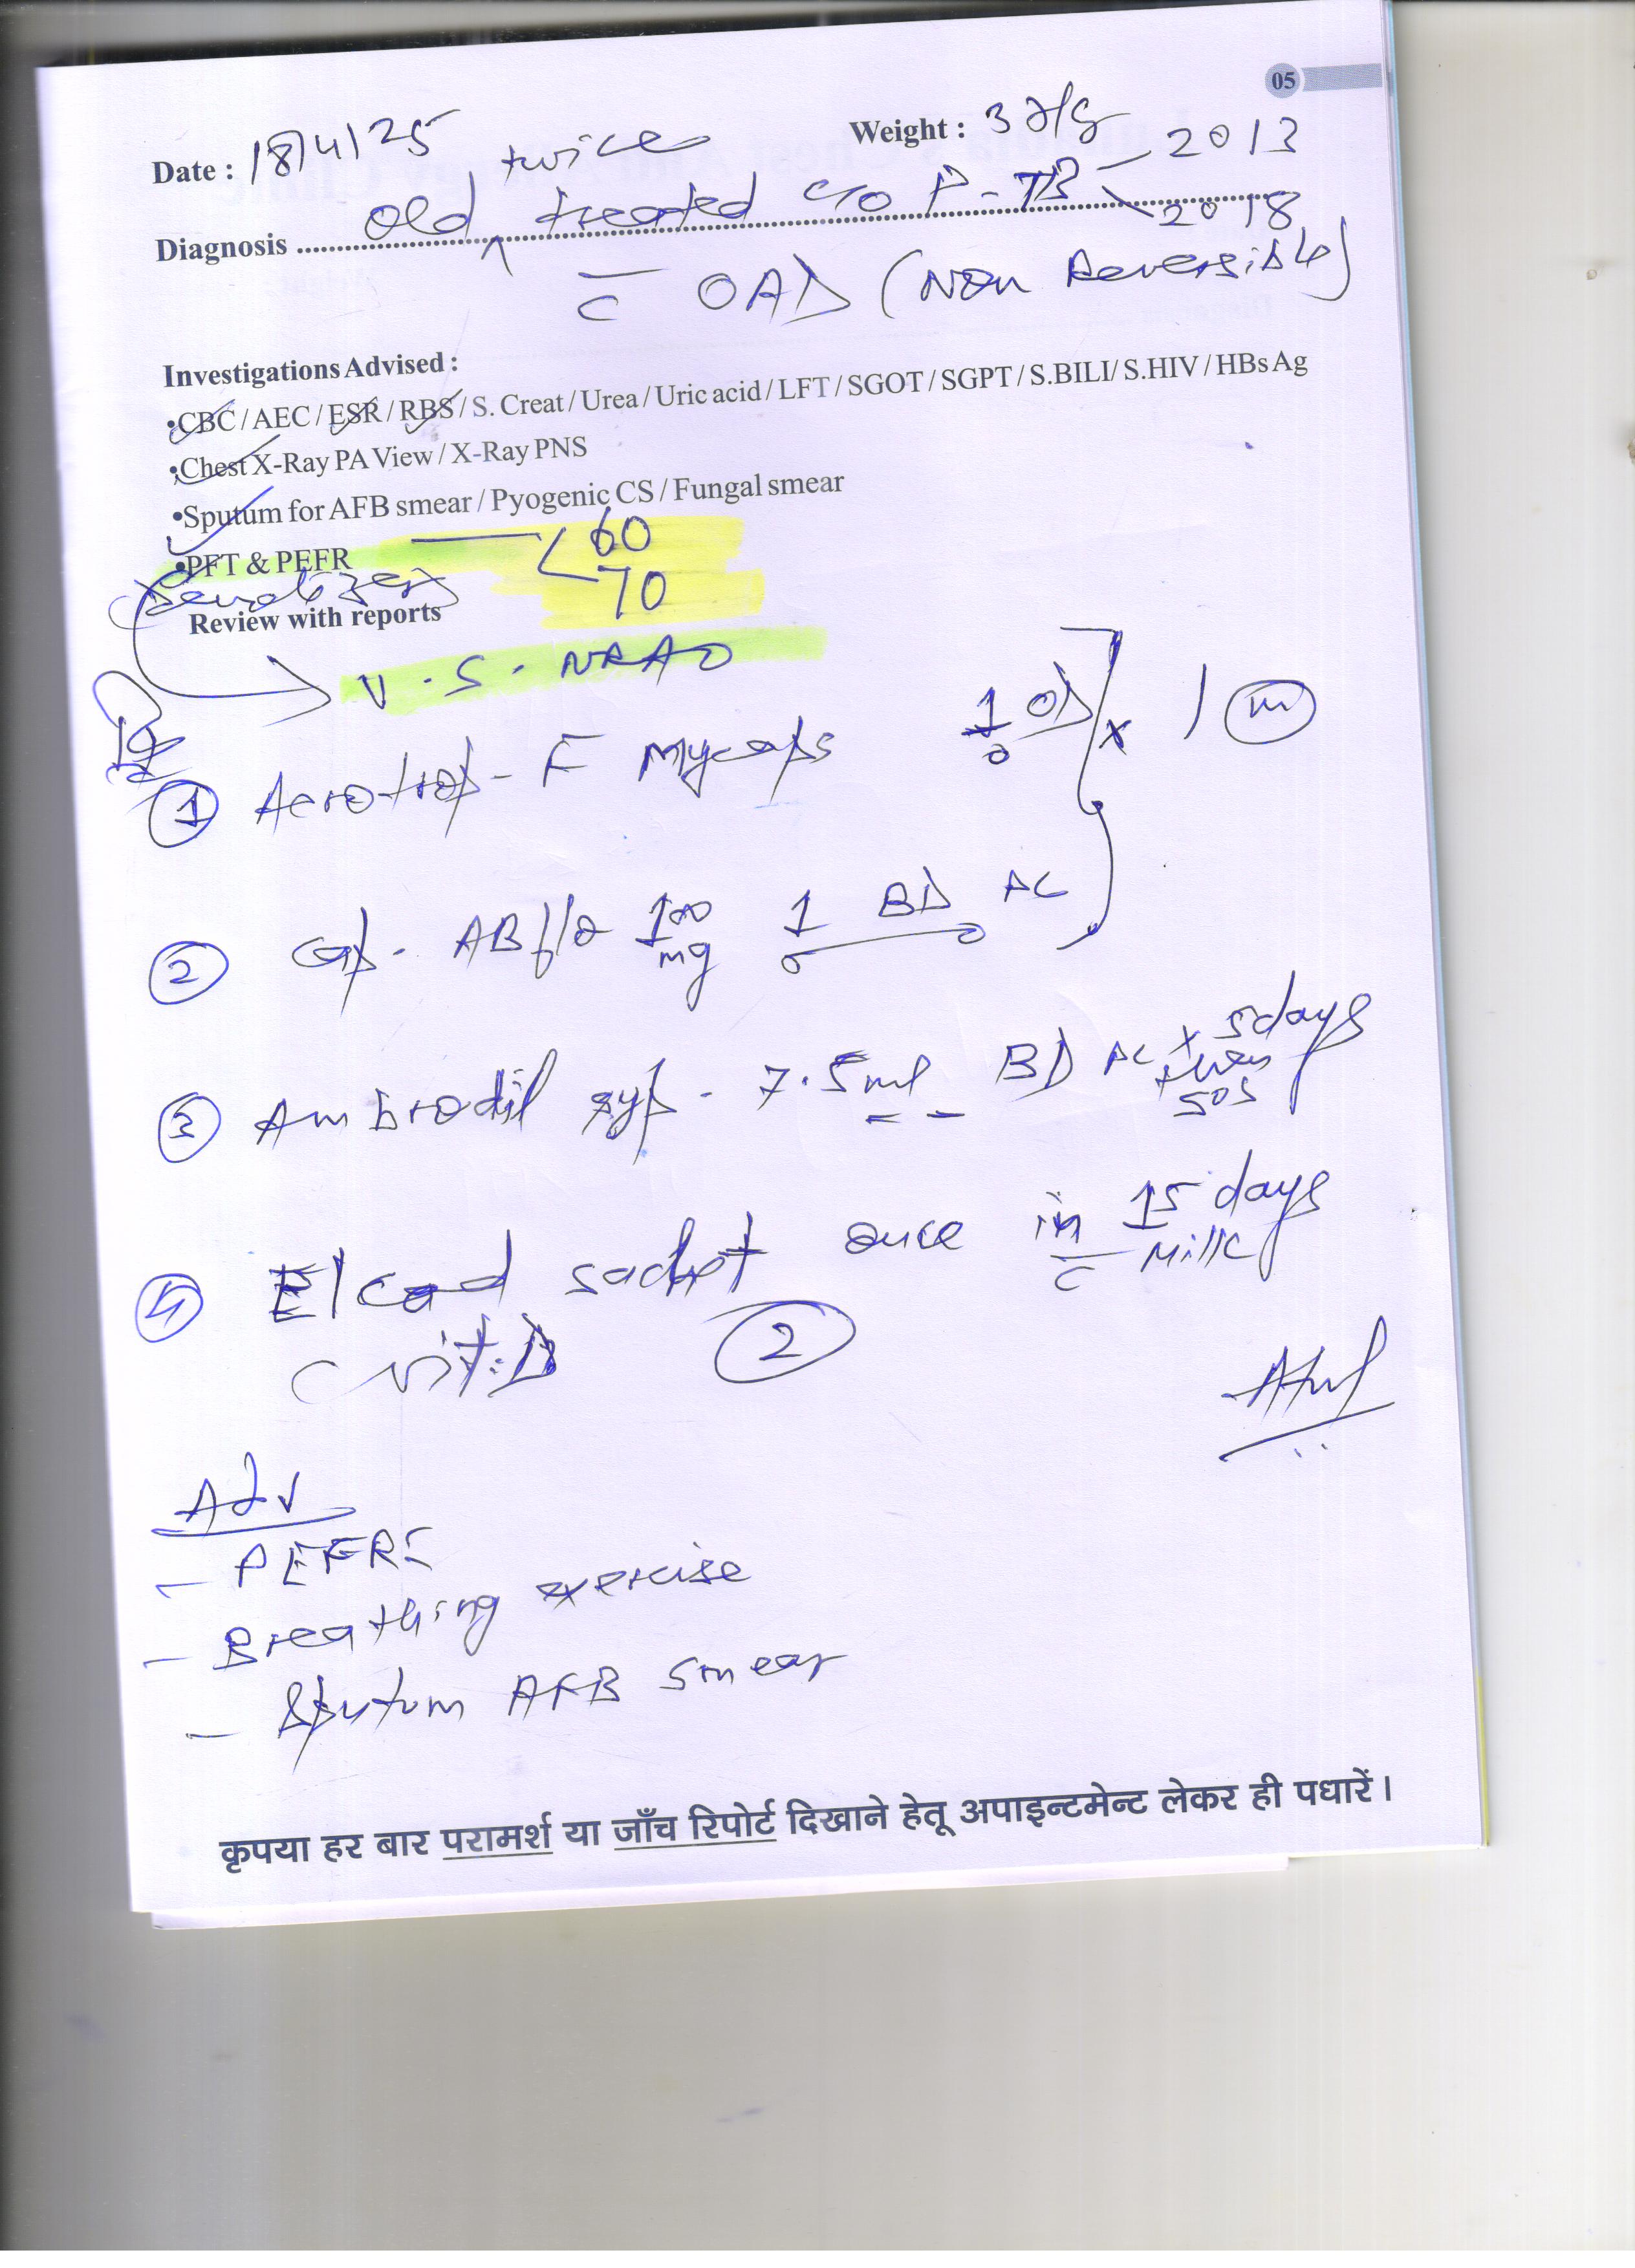 05
Date : 18/4/25 Weight :
twice
Diagnosis old ^ treated c/o P-TB 2013
2018
c̄ OAD (Non Reversible)
Investigations Advised :
•CBC / AEC / ESR / RBS / S. Creat / Urea / Uric acid / LFT / SGOT / SGPT / S.BILI/ S.HIV / HBs Ag
•Chest X-Ray PA View / X-Ray PNS
•Sputum for AFB smear / Pyogenic CS / Fungal smear
•PFT & PEFR < 60
70
Review with reports
V.S. NRAO
① Aerotrop-F Mycaps 1 OD x 1 (m)
② Cap. ABflo 100 mg 1 BD AC
③ Ambrodil syp. 7.5ml BD AC x 5 days
then SOS
④ Elcad sachet once in 15 days
c̄ Milk
(vit.D ②
Adv
- PEFR
- Breathing exercise
- Sputum AFB smear
कृपया हर बार परामर्श या जाँच रिपोर्ट दिखाने हेतू अपाइन्टमेन्ट लेकर ही पधारें।